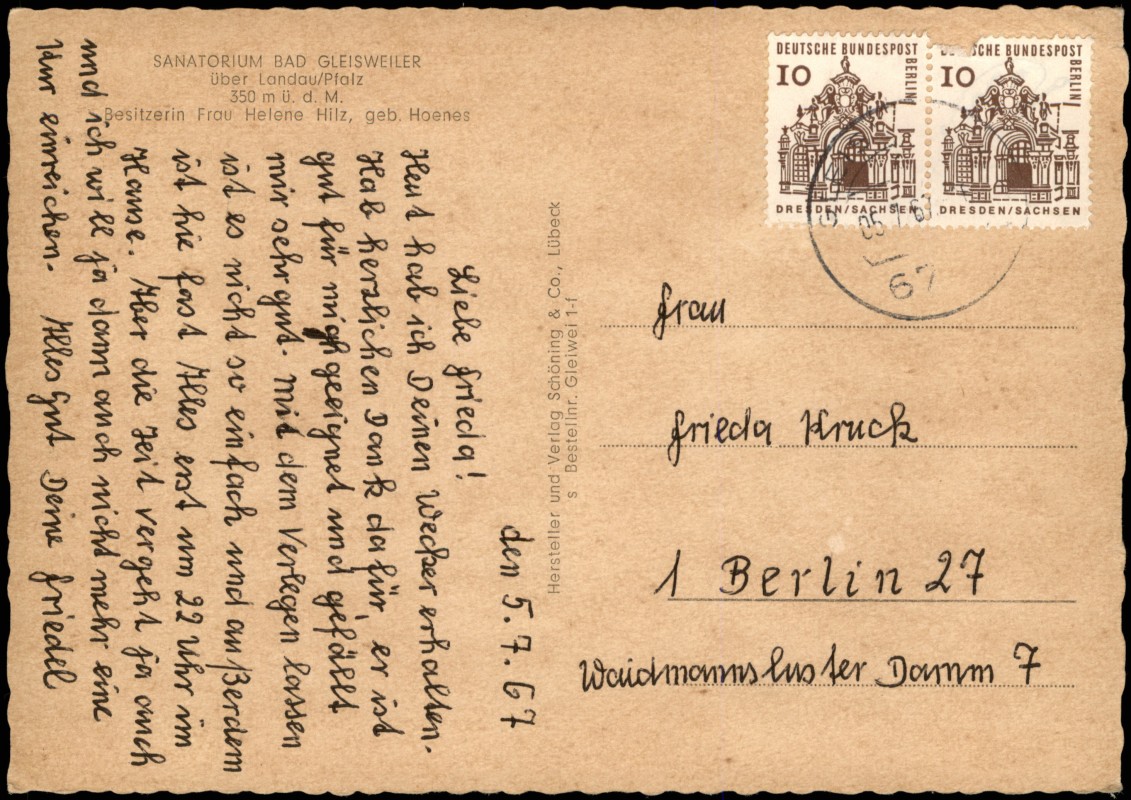 SANATORIUM BAD GLEISWEILER
über Landau/Pfalz
350 m ü. d. M.
Besitzerin Frau Helene Hilz, geb. Hoenes
den 5.7.67
Liebe Frieda!
Heut hab ich Deinen Wecker erhalten.
Hab herzlichen Dank dafür, er ist
gut für mich geeignet und gefällt
mir sehr gut. Mit dem Verlegen lassen
ist es nicht so einfach und außerdem
ist hie fast Alles erst um 22 Uhr im
Hause. Aber die Zeit vergeht ja auch
und ich will ja dann auch nicht mehr eine
Kur einreichen. Alles Gut Deine Friedel
Hersteller und Verlag Schöning & Co., Lübeck
s. Bestellnr. Gleiwei 1-f
DEUTSCHE BUNDESPOST
BERLIN
10
DRESDEN/SACHSEN
SCHE BUNDESPOST
BERLIN
10
DRESDEN/SACHSEN
67
Frau
Frieda Kruck
1 Berlin 27
Waidmannsluster Damm 7